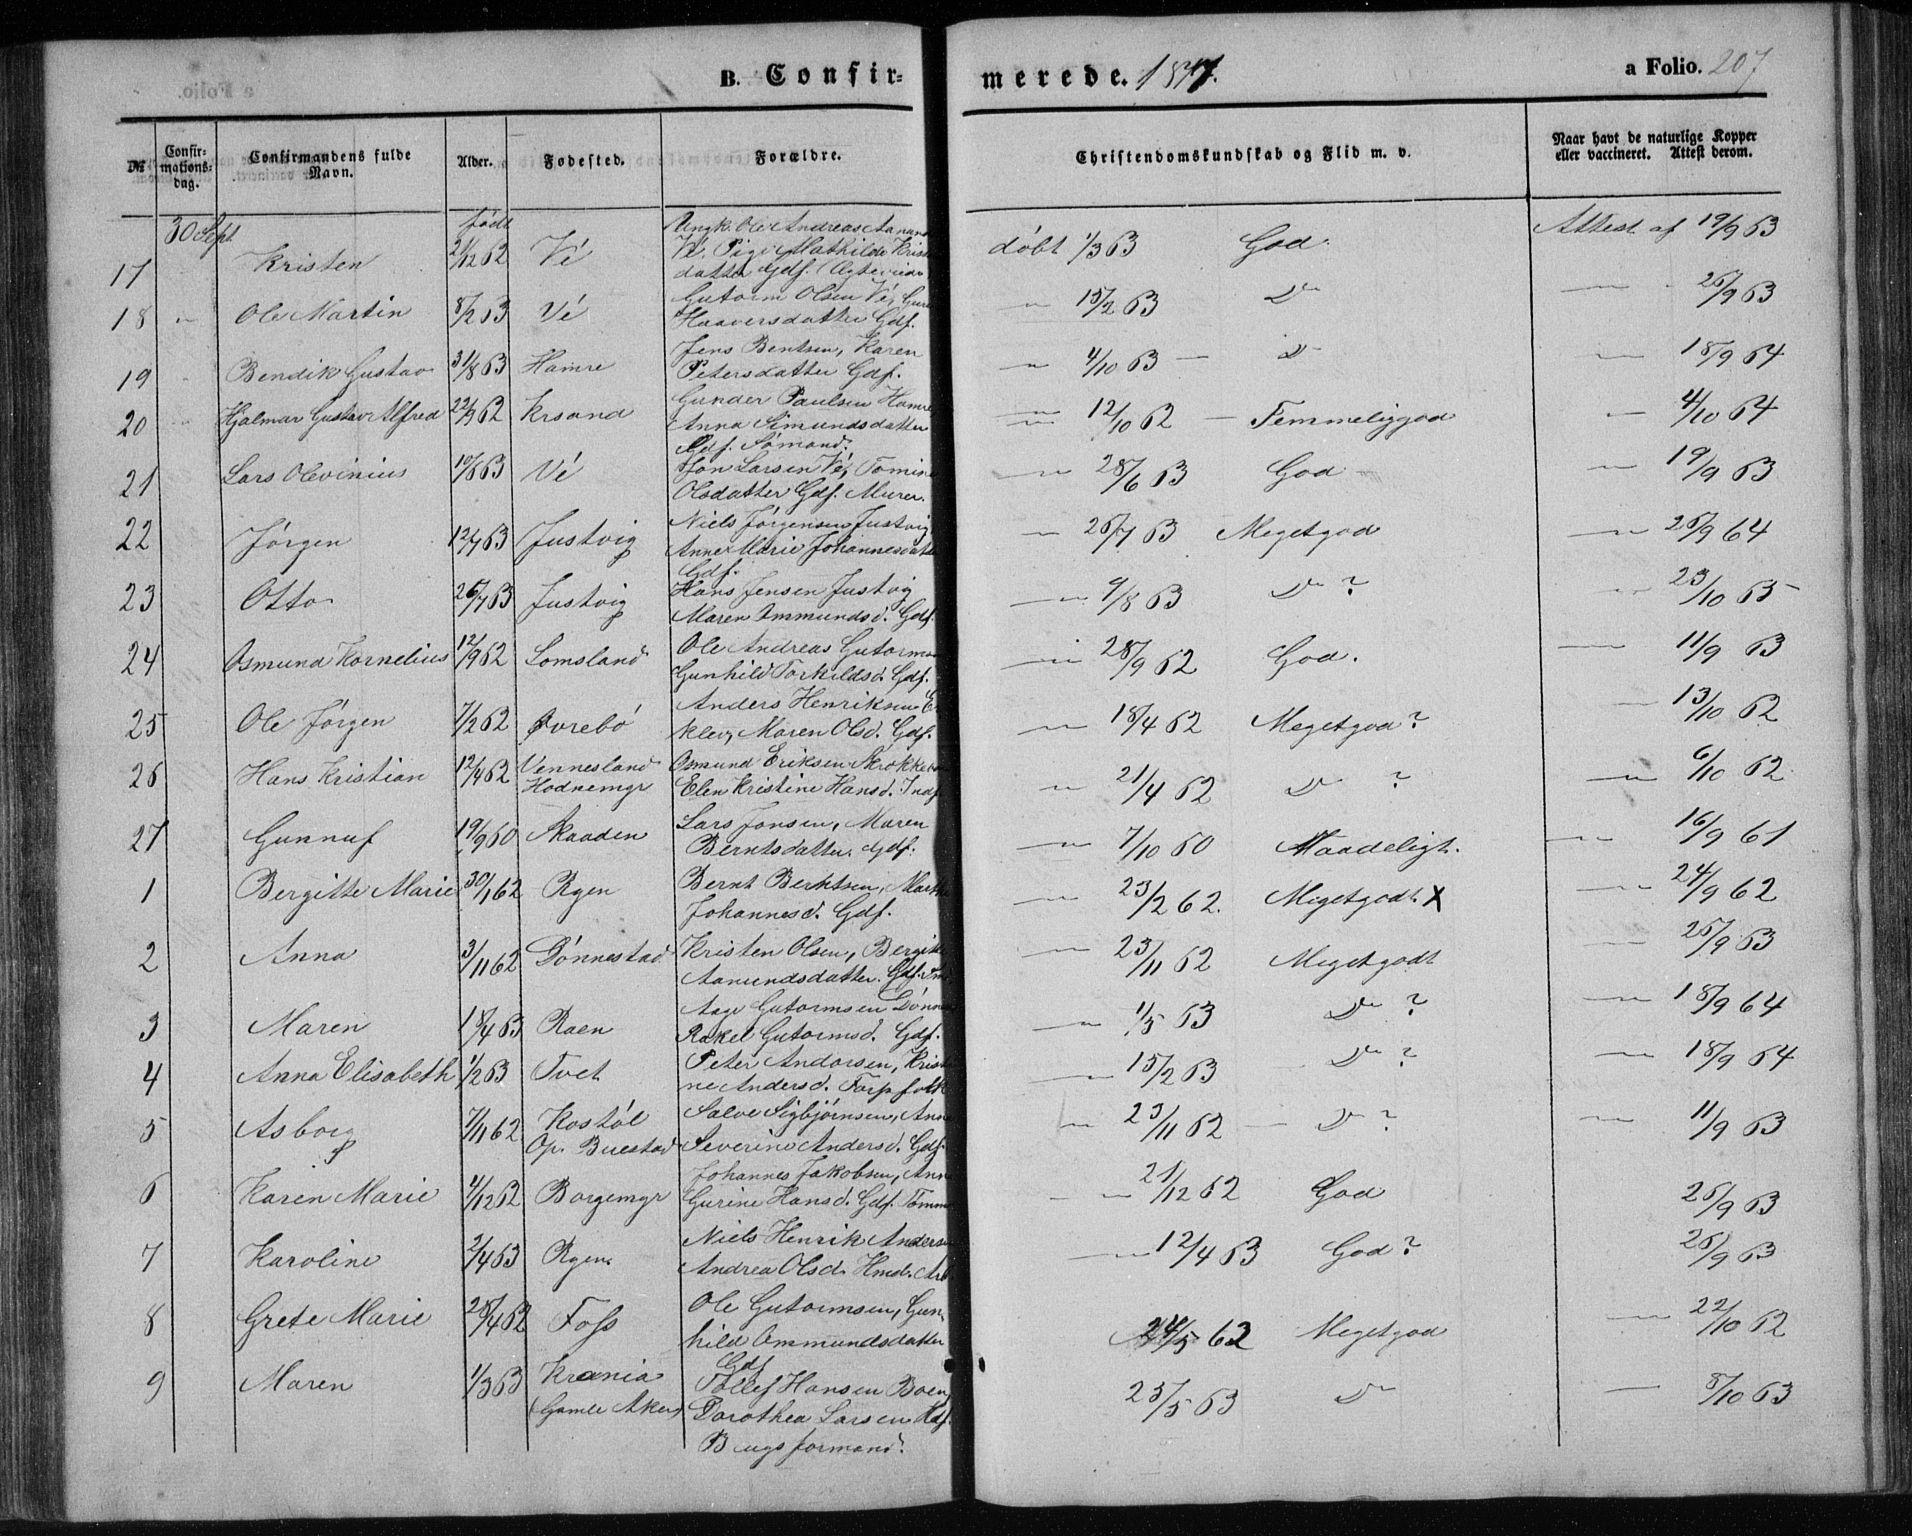 B. Confir=
merede. 1877.
a Folio. 207
№
Confir=
mations=
dag.
Confirmandens fulde
Navn.
Alder.
Fødested.
Forældre.
Christendomskundskab og Flid m. v.
Naar havt de naturlige Kopper
eller vaccineret. Attest derom.
30 Sept. født
17 Kristen 21/12 62 Vé Ungk. Ole Andreas Aanun
Vé, Pige Mathilde Krist
datter Gdf. døbt 1/3 63 God. Attest af 19/9 63
18 Ole Martin 8/2 63 Vé Gutorm Olsen Vé, Guro
Haaversdatter Gdf. 15/2 63 Do 26/9 63
19 Bendik Gustav 31/8 63 Hamre Jens Bentsen, Karen
Petersdatter Gdf. 4/10 63 Do 18/9 64
20 Hjalmar Gustav Alfred 22/9 62 Krsand Gunder Paulsen Hamre
Anna Simundsdatter
Gdf. Sømand. 12/10 62 Temmeliggod 4/10 64
21 Lars Olevinius 10/6 63 Vé Jon Larsen Vé, Tomine
Olsdatter Gdf. Murer. 28/6 63 God 19/9 63
22 Jørgen 12/7 63 Justvig Niels Jørgensen Justvig
Anne Marie Johannesdatt
Gdf. 26/7 63 Megetgod 26/9 64
23 Otto 26/7 63 Justvig Hans Jensen Justvig
Maren Ommundsd. Gdf. 9/8 63 Do ? 23/10 65
24 Osmund Kornelius 12/9 62 Lomsland Ole Andreas Gutorms
Gunhild Torkildsd. Gdf. 28/9 62 God. 11/9 63
25 Ole Jørgen 7/2 62 Øvrebø Anders Henriksen E
klev, Maren Olsd. Gdf. 18/4 62 Megetgod? 13/10 62
26 Hans Kristian 12/4 62 Vennesland
Hodnemyr Osmund Eriksen Skrokke
Elen Kristine Hansd. Indf 21/4 62 Do ? 6/10 62
27 Gunnuf 19/9 60 Skaaden Lars Jonsen, Maren
Berntsdatter. Gdf. 7/10 60 Maadeligt. 16/9 61
1 Bergitte Marie 30/1 62 Ryen Bernt Berntsen, Marthe
Johannesd. Gdf. 23/2 62. Megetgodt. X 24/9 62
2 Anna 3/11 62 Dønnestad Kristen Olsen, Bergitte
Aanundsdatter. Gdf. 23/11 62 Megetgodt 26/9 63
3 Maren 18/4 63 Raen Aage Gutormsen Dønne
Rakel Gutormsd. Gdf. 1/5 63 Do ? 18/9 64
4 Anna Elisabeth 1/2 63 Tvet Peter Andersen, Kristi
ne Andersd. Torp folk 15/2 63 Do ? 18/9 64
5 Asborg 7/11 62 Kostøl
Op. Buestad Salve Sigbjørnsen, Anne
Severine Andersd. Gdf. 23/11 62 Do ? 11/9 63
6 Karen Marie 4/12 62 Borgemyr Johannes Jakobsen, Anne
Gurine Hansd. Gdf. Tømm 21/12 62 God 26/9 63
7 Karoline 2/4 63 Ryen Niels Henrik Anders
Andrea Olsd. Hmd. Arb 12/4 63 God? 26/9 63
8 Grete Marie 28/4 62 Foss Ole Gutormsen, Gun,
hild Ommundsdatter
Gdf 24/5 62 Megetgod 22/10 62
9 Maren 1/3 63 Krania
(Gamle Aker) Tollef Hansen Boen
Dorothea Larsen Hdf.
Bugsformand. 25/5 63 Do 8/10 63